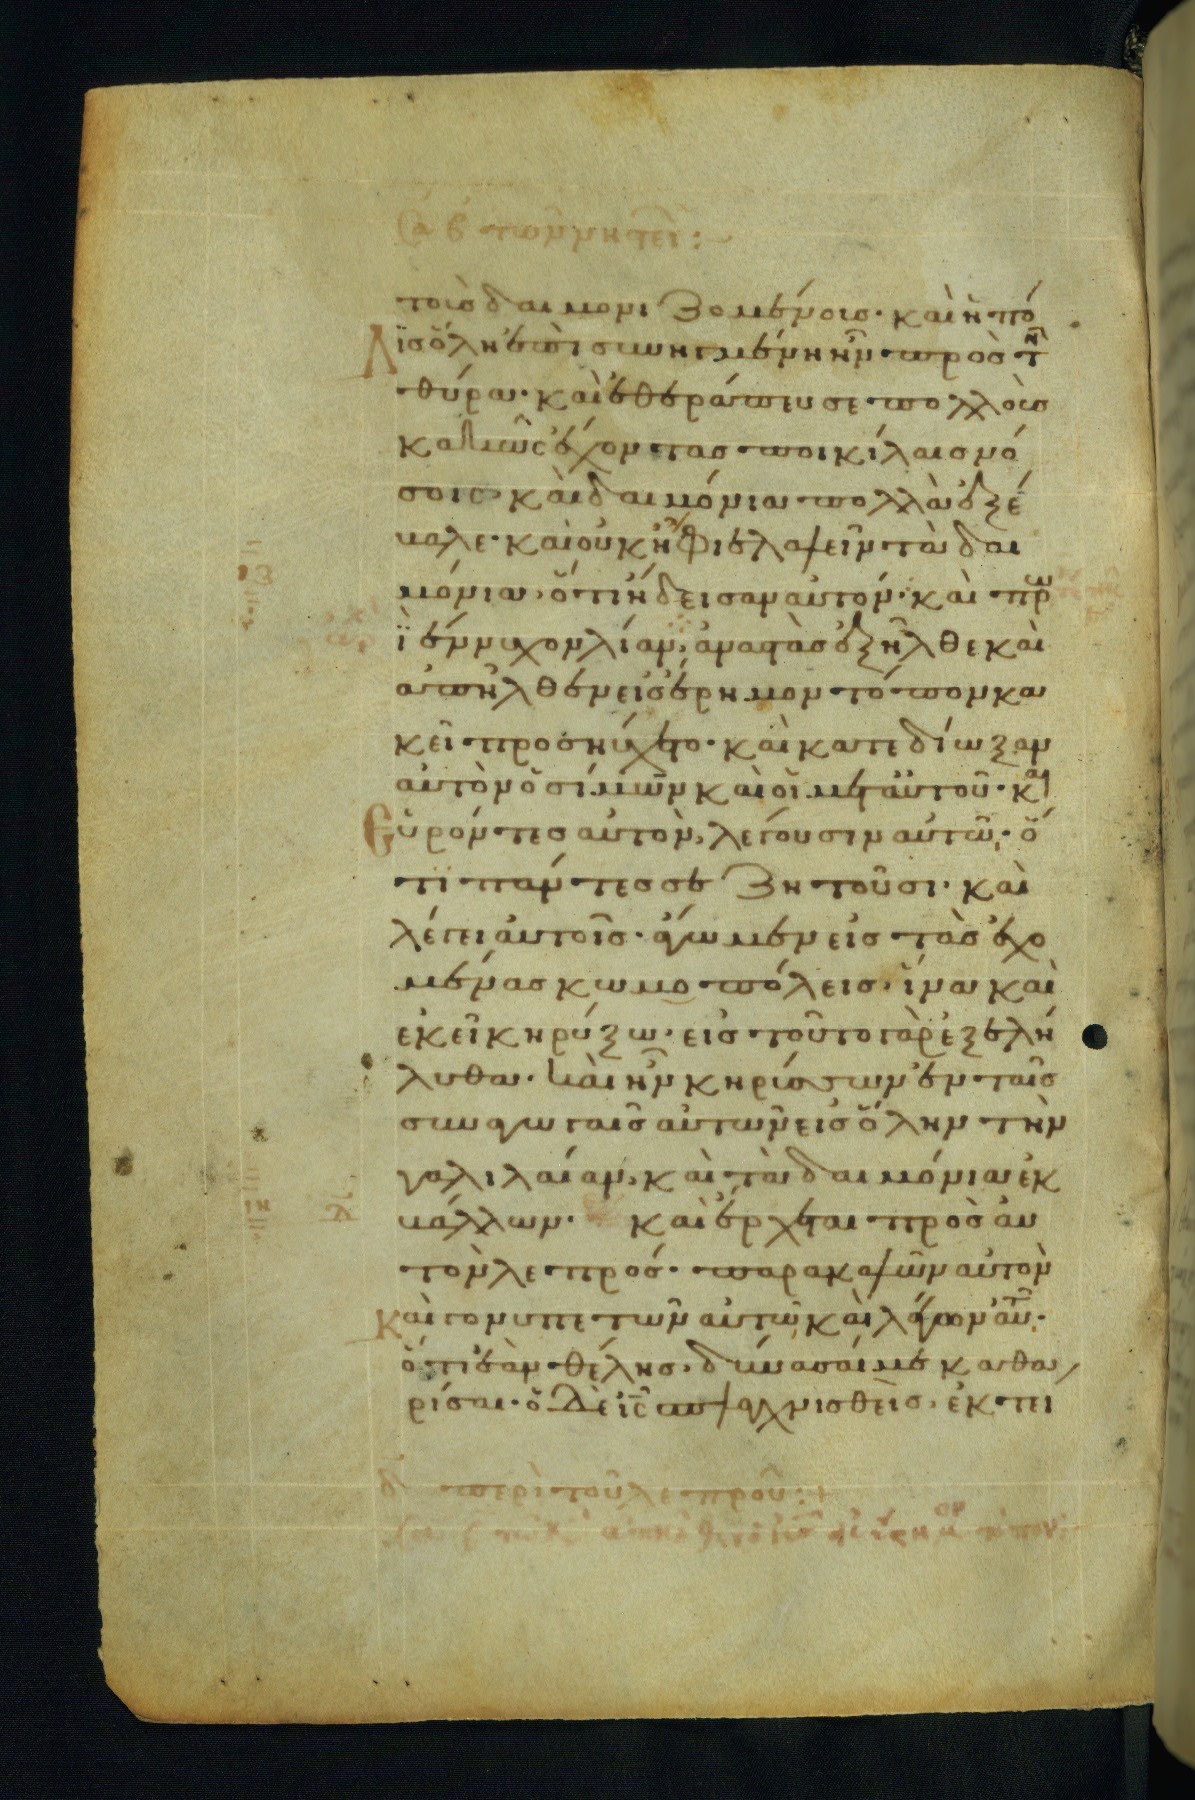 τοὺσ δαιμονιζομένουσ· καὶ ἡ πό
λισ ὅλη ἐπισυνηγμένη ἦν πρὸσ τὴν
θύραν· καὶ ἐθεράπευσε πολλοὺσ
κακῶς ἔχοντασ ποικίλαισ νό
σοις· καὶ δαιμόνια πολλὰ ἐξέ
βαλε· καὶ οὐκ ἤφιε λαλεῖν τὰ δαι
μόνια, ὅτι ἤδεισαν αὐτόν· καὶ πρω
ῒ ἔννυχον λίαν, ἀναστὰσ ἐξῆλθε καὶ
ἀπῆλθεν εἰσ ἔρημον τόπον κα
κεῖ προσηύχετο· καὶ κατεδίωξαν
αὐτὸν ὁ σίμων καὶ οἱ μετ αὐτοῦ· καὶ
Εὑρόντεσ αὐτὸν, λέγουσιν αὐτῶ· ὅ
τι πάντεσ σε ζητοῦσι· καὶ
λέγει αὐτοῖσ· ἄγωμεν εἰσ τὰσ ἐχο
μένασ κωμοπόλεισ, ἵνα καὶ
ἐκεῖ κηρύξω· εἰσ τοῦτο γὰρ ἐξελή
λυθα· καὶ ἦν κηρύσσων ἐν ταῖσ
συναγωγαῖσ αὐτῶν εἰσ ὅλην τὴν
γαλιλαίαν, καὶ τὰ δαιμόνια ἐκ
βάλλων· καὶ ἔρχεται πρὸσ αὐ
τὸν λεπρόσ· παρακαλῶν αὐτὸν
Καὶ γονυπετῶν αὐτῶ, καὶ λέγων αὐτῶ·
ὅτι ἐὰν θέλησ, δύνασαί με καθα
ρίσαι· ὁ δὲ ις σπλαγχνισθεὶσ, ἐκτεί
δ περὶ τοῦ λεπροῦ:+